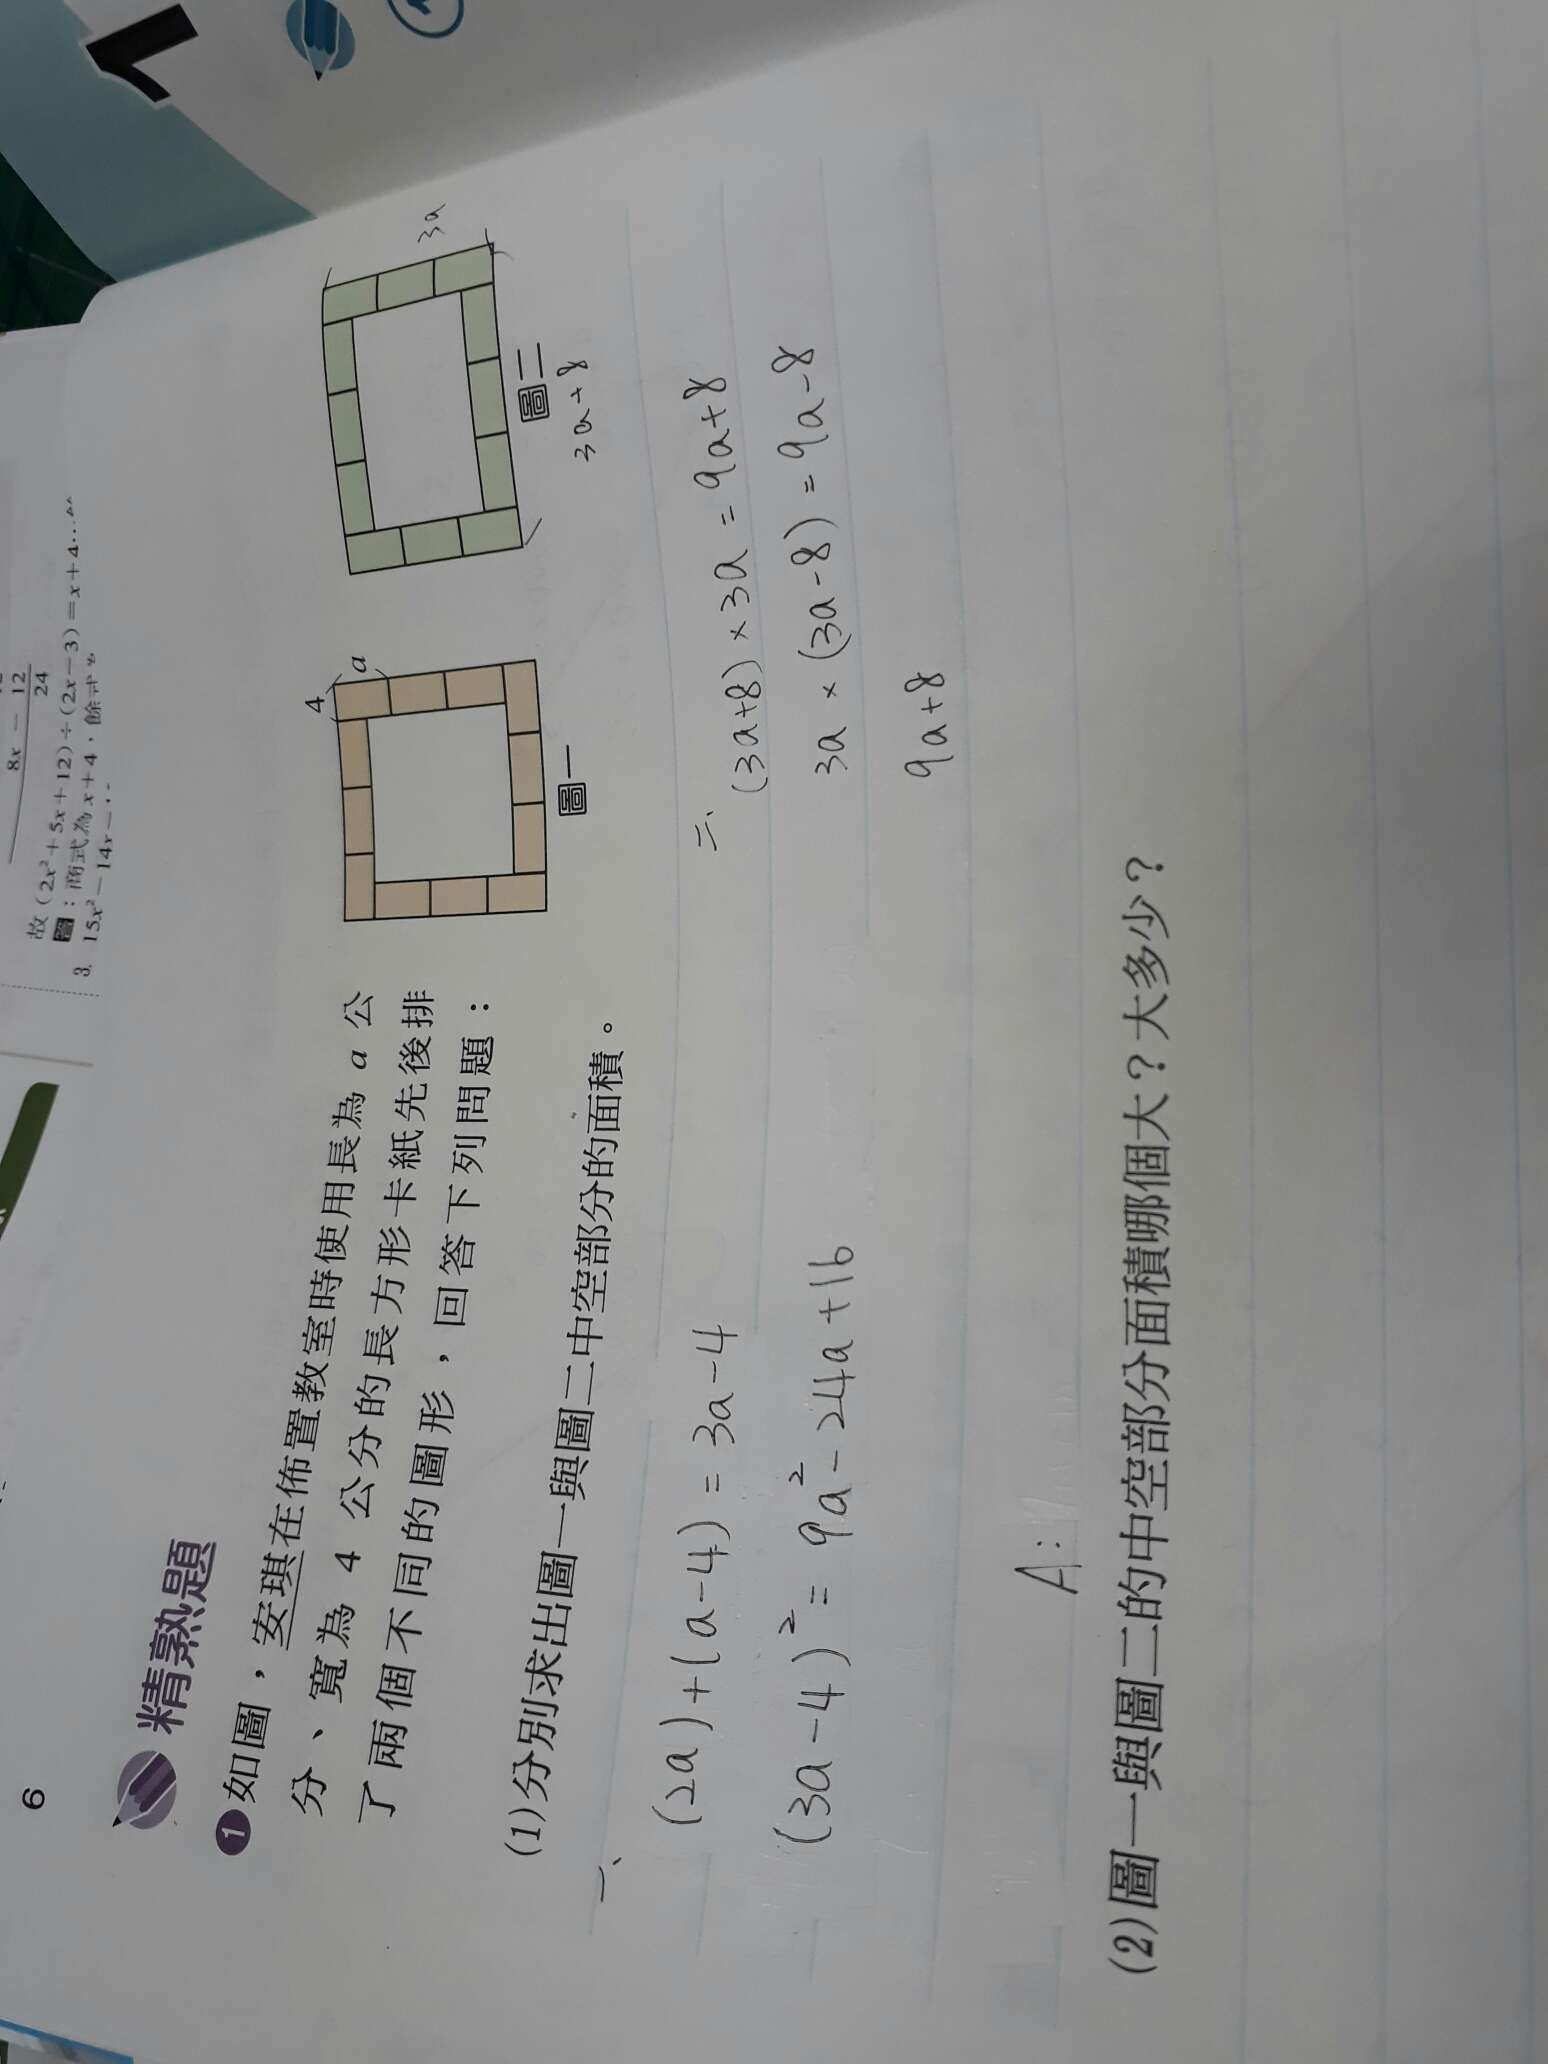 6
8x － 12
24
故 (2x²＋5x＋12)÷(2x－3)＝x＋4…
答：商式為 x＋4，餘式
3. 15x²－14x－
精熟題
1 如圖，安琪在佈置教室時使用長為 a 公
分、寬為 4 公分的長方形卡紙先後排
了兩個不同的圖形，回答下列問題：
4
a
圖一
3a
圖二
3a+8
(1)分別求出圖一與圖二中空部分的面積。
一、
(2a)+(a-4)=3a-4
(3a-4)²=9a²-24a+16
二、
(3a+8)×3a=9a+8
3a×(3a-8)=9a-8
9a+8
A:
(2)圖一與圖二的中空部分面積哪個大？大多少？